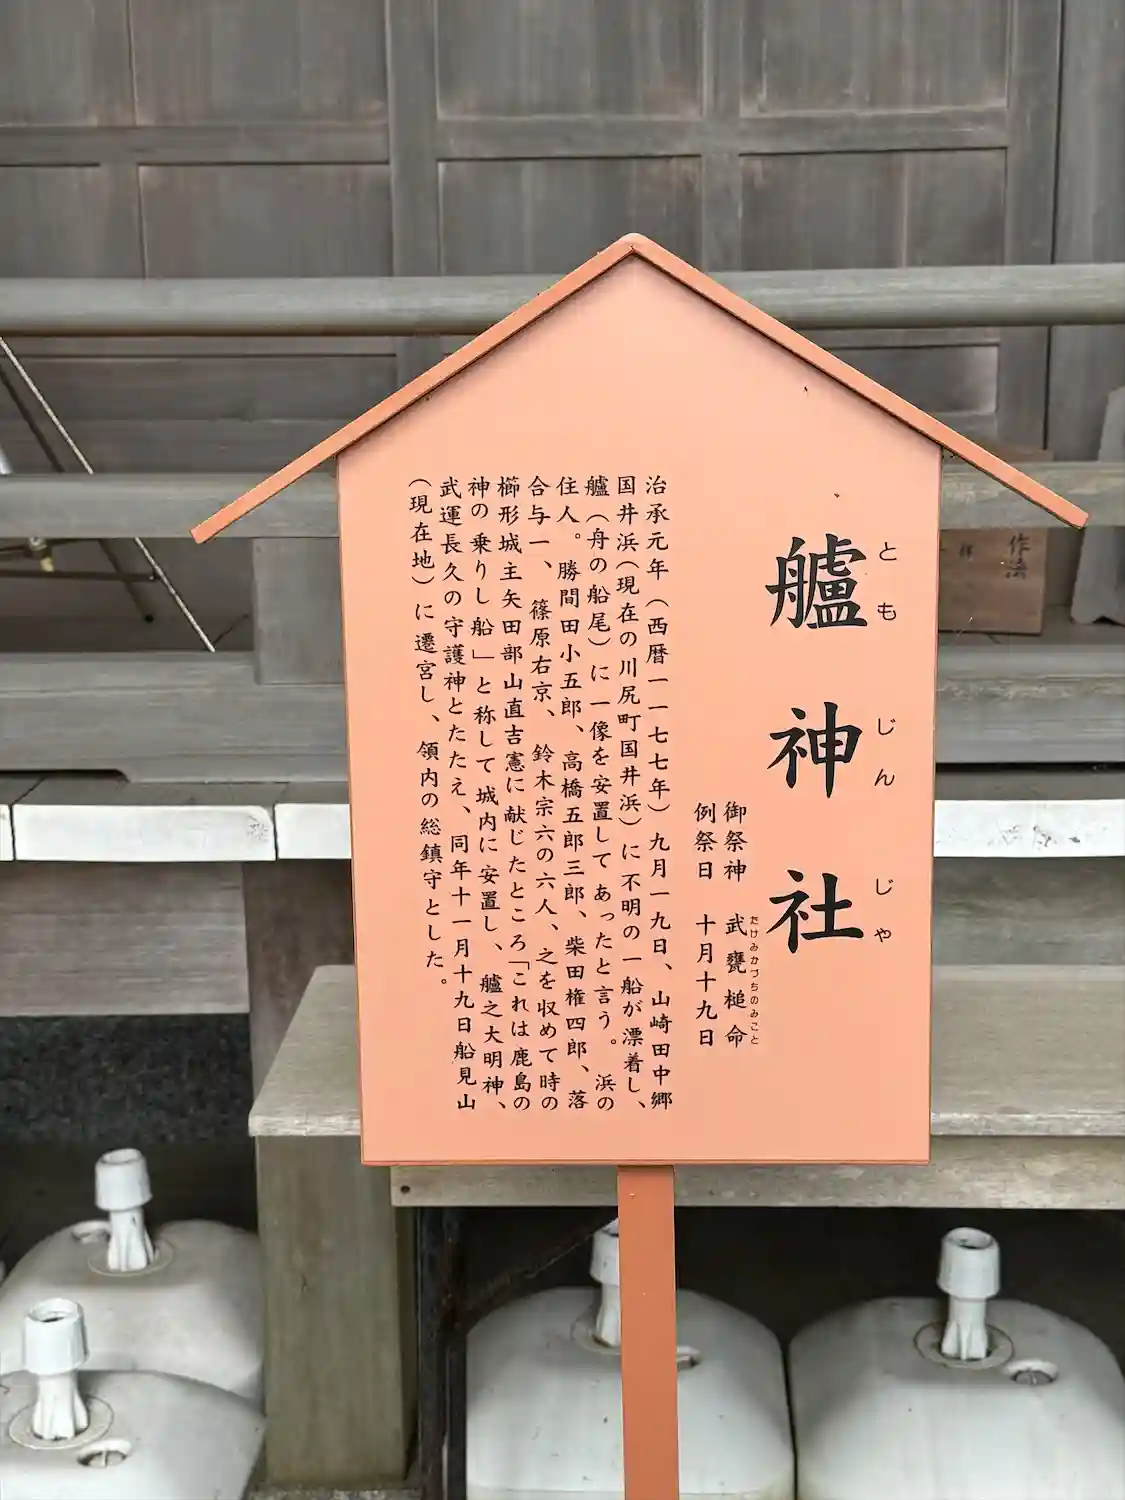 艫神社
ともじんじゃ
御祭神 武甕槌命
たけみかづちのみこと
例祭日 十月十九日
治承元年(西暦一一七七年)九月一九日、山崎田中郷
国井浜(現在の川尻町国井浜)に不明の一船が漂着し、
艫(舟の船尾)に一像を安置してあったと言う。浜の
住人。勝間田小五郎、高橋五郎三郎、柴田権四郎、落
合与一、篠原右京、鈴木宗六の六人、之を収めて時の
櫛形城主矢田部山直吉憲に献じたところ「これは鹿島の
神の乗りし船」と称して城内に安置し、艫之大明神、
武運長久の守護神とたたえ、同年十一月十九日船見山
(現在地)に遷宮し、領内の総鎮守とした。
作法